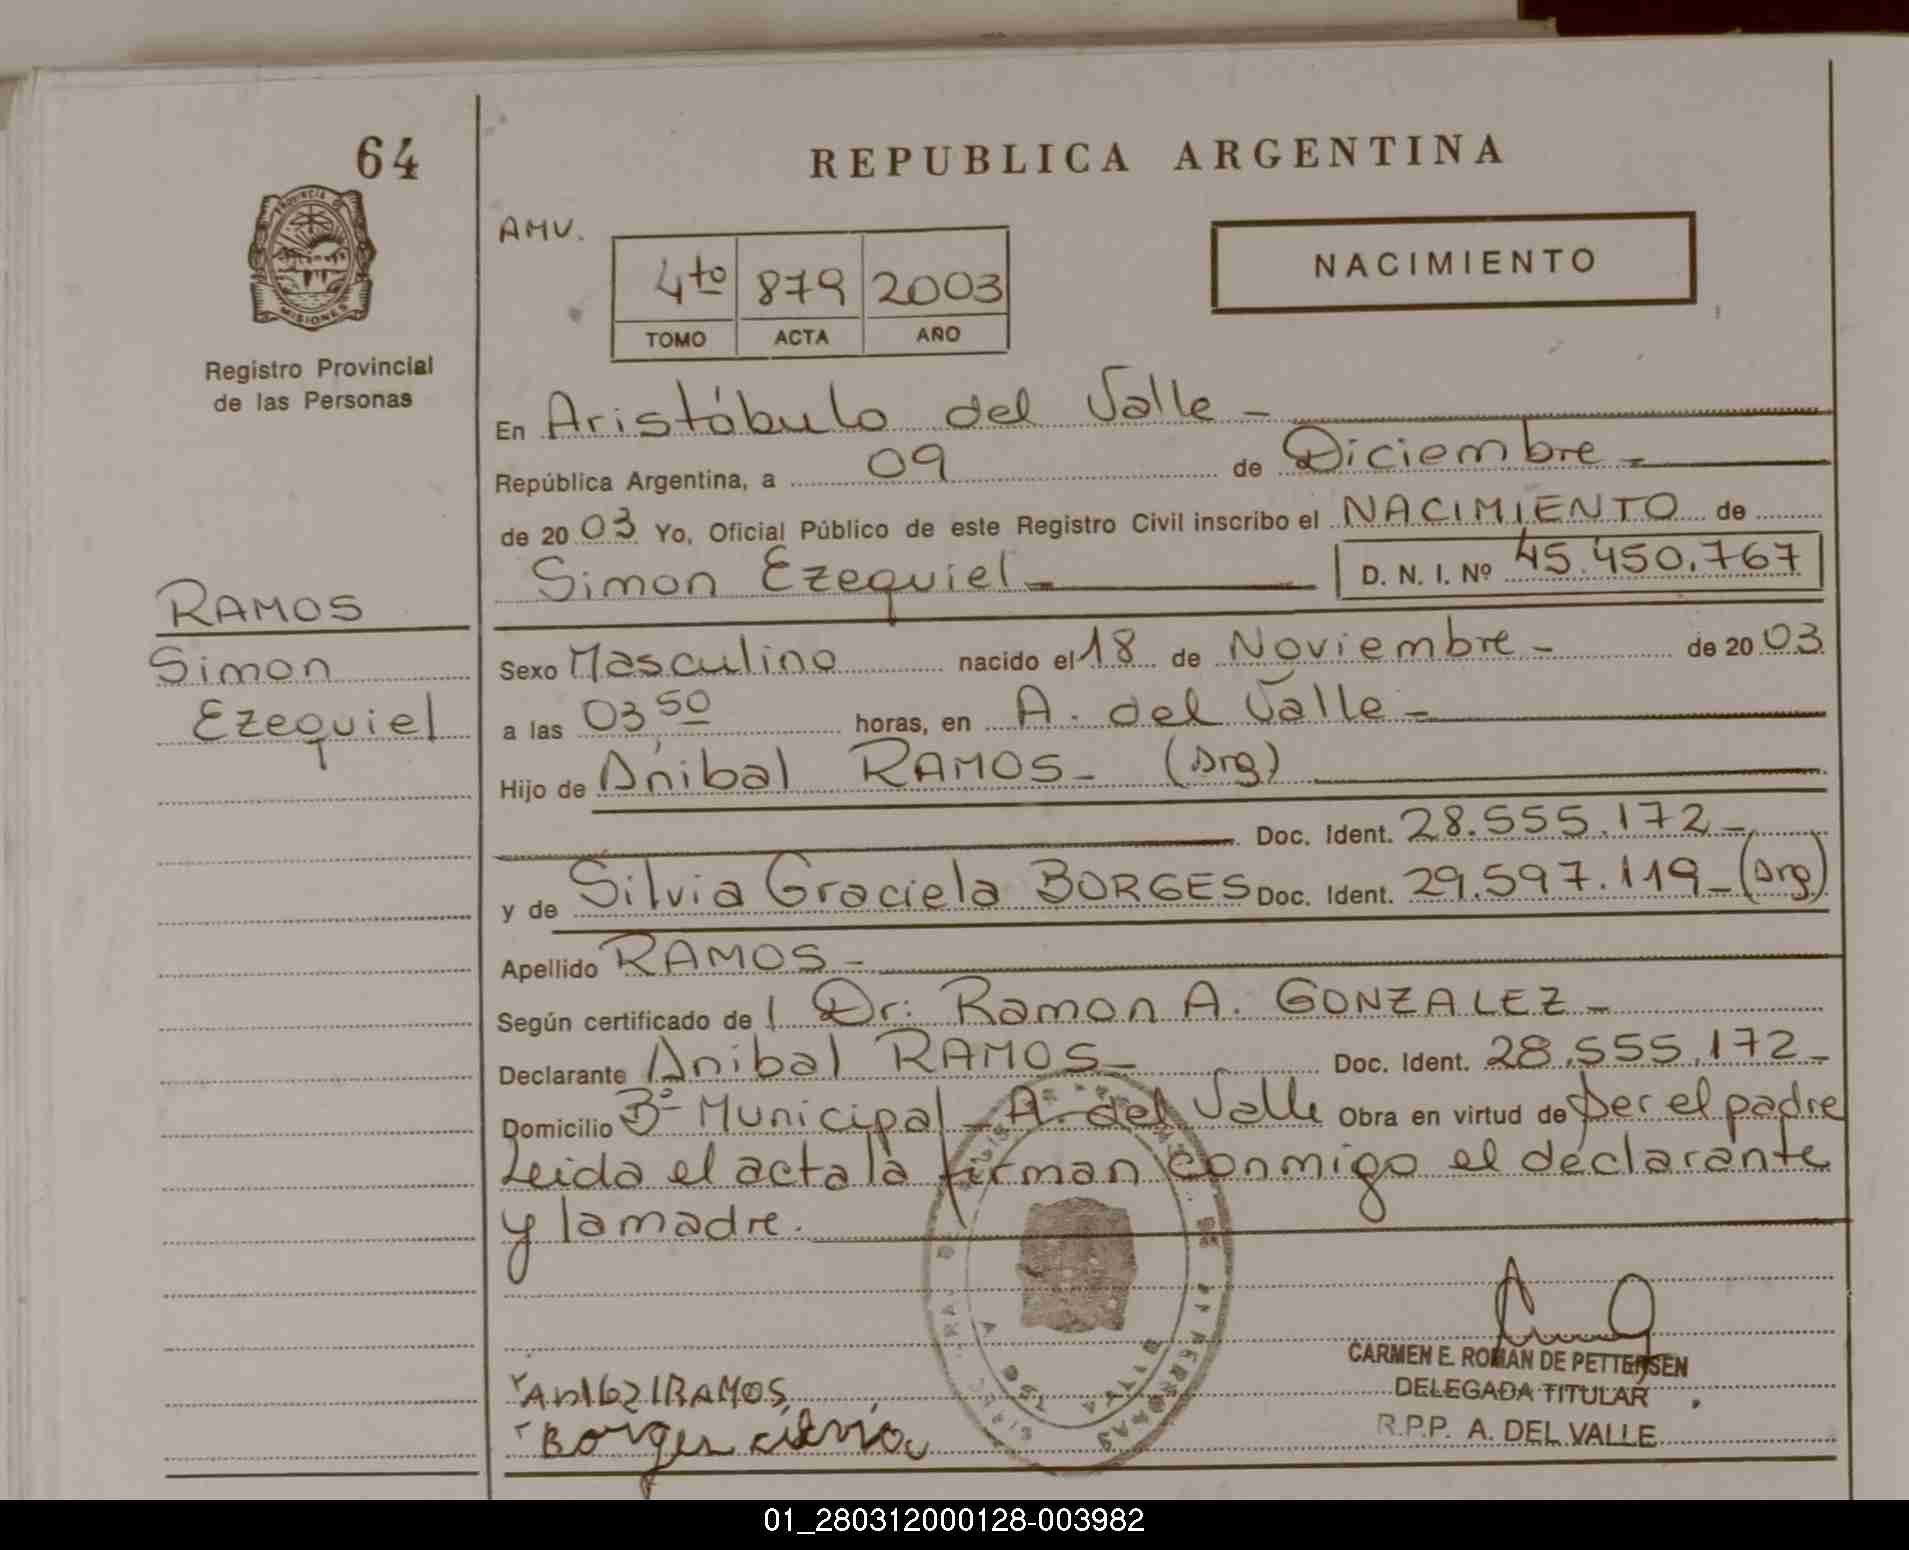 64
PROVINCIA DE
MISIONES
Registro Provincial
de las Personas
REPUBLICA ARGENTINA
AMV.
4to 879 2003
TOMO ACTA AÑO
NACIMIENTO
En Aristóbulo del Valle -
República Argentina, a 09 de Diciembre -
de 2003 Yo, Oficial Público de este Registro Civil inscribo el NACIMIENTO de
Simon Ezequiel - D. N. I. Nº 45.450.767
RAMOS
Simon
Ezequiel
Sexo Masculino nacido el 18 de Noviembre - de 2003
a las 03,50 horas, en A. del Valle -
Hijo de Anibal RAMOS - (Arg)
Doc. Ident. 28.555.172 -
y de Silvia Graciela BORGES Doc. Ident. 29.597.119 - (Arg)
Apellido RAMOS -
Según certificado de l Dr: Ramon A. GONZALEZ -
Declarante Anibal RAMOS - Doc. Ident. 28.555.172 -
Domicilio Bº Municipal - A. del Valle Obra en virtud de ser el padre
Leida el acta la firman conmigo el declarante
y la madre.
CARMEN E. ROMAN DE PETTERSEN
DELEGADA TITULAR
R.P.P. A. DEL VALLE
ANIBAL RAMOS
Borges Silvia
01_280312000128-003982